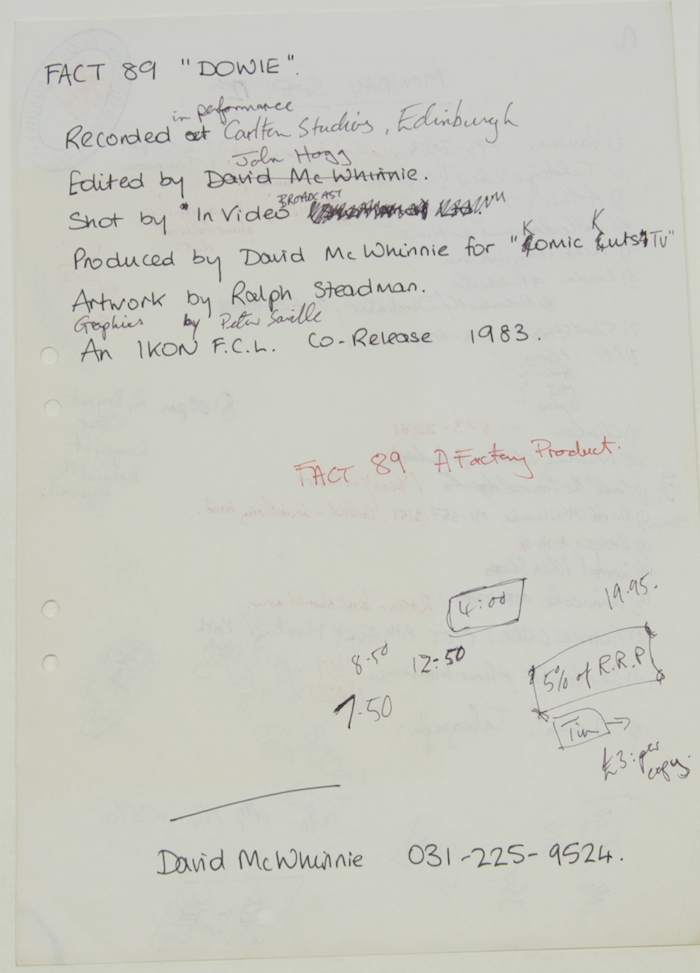 FACT 89 "DOWIE".
in performance
Recorded at Carlton Studios, Edinburgh
John Hogg
Edited by David McWhinnie.
BROADCAST
Shot by "In Video
K K
Produced by David McWhinnie for "Comic Cuts TV"
Artwork by Ralph Steadman.
Graphics by Peter Saville
An IKON F.C.L. Co-Release 1983.
FACT 89 A Factory Product.
4:00
19.95.
8.50 12:50
5% of R.R.P
7.50
Tim →
£3: per
copy.
David McWhinnie 031-225-9524.